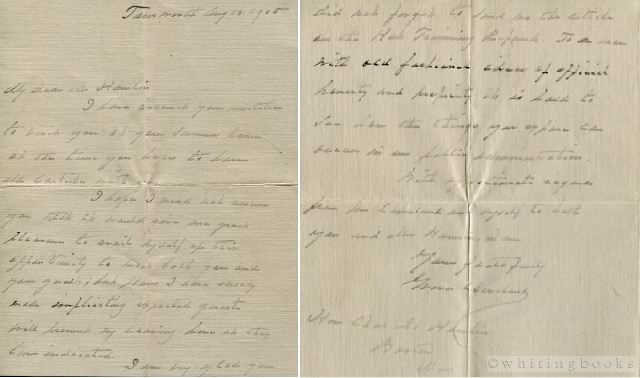 Tamworth Aug 10. 1905
My dear Mr Hamlin
I have received your invitation
to visit you at your Summer home
at the time you hope to have
Mr Carlisle with you
I hope I need not assure
you that it would give me great
pleasure to avail myself of this
opportunity to meet both you and
your guest; but plans I have already
made expected guests
will prevent my leaving here at the
time indicated.
I am very glad you
did not forget to send me the article
on the
with old fashioned ideas of official
honesty and it is hard to
see how the things you expose can
occur in our public administration.
With affectionate regards
from Mrs Cleveland and myself to both
you and Mrs Hamlin, I am
Yours faithfully
Grover Cleveland
Hon Chas. S. Hamlin
Boston
Mass
©whitingbooks